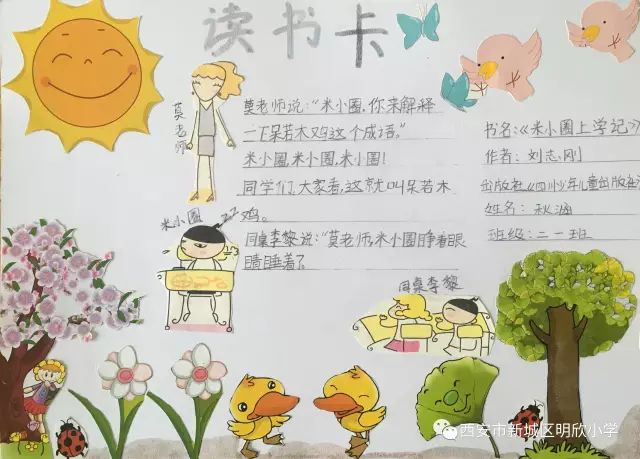 读书卡
莫老师
莫老师说:“米小圈,你来解释
一下呆若木鸡这个成语。”
米小圈,米小圈,米小圈!
同学们,大家看,这就叫呆若木
鸡。
同桌李黎说:“莫老师,米小圈睁着眼
睛睡着了
米小圈
zzz
同桌李黎
书名:《米小圈上学记》
作者:刘志刚
出版社《四川少年儿童出版社》
姓名:秋涵
班级:二一班
西安市新城区明欣小学